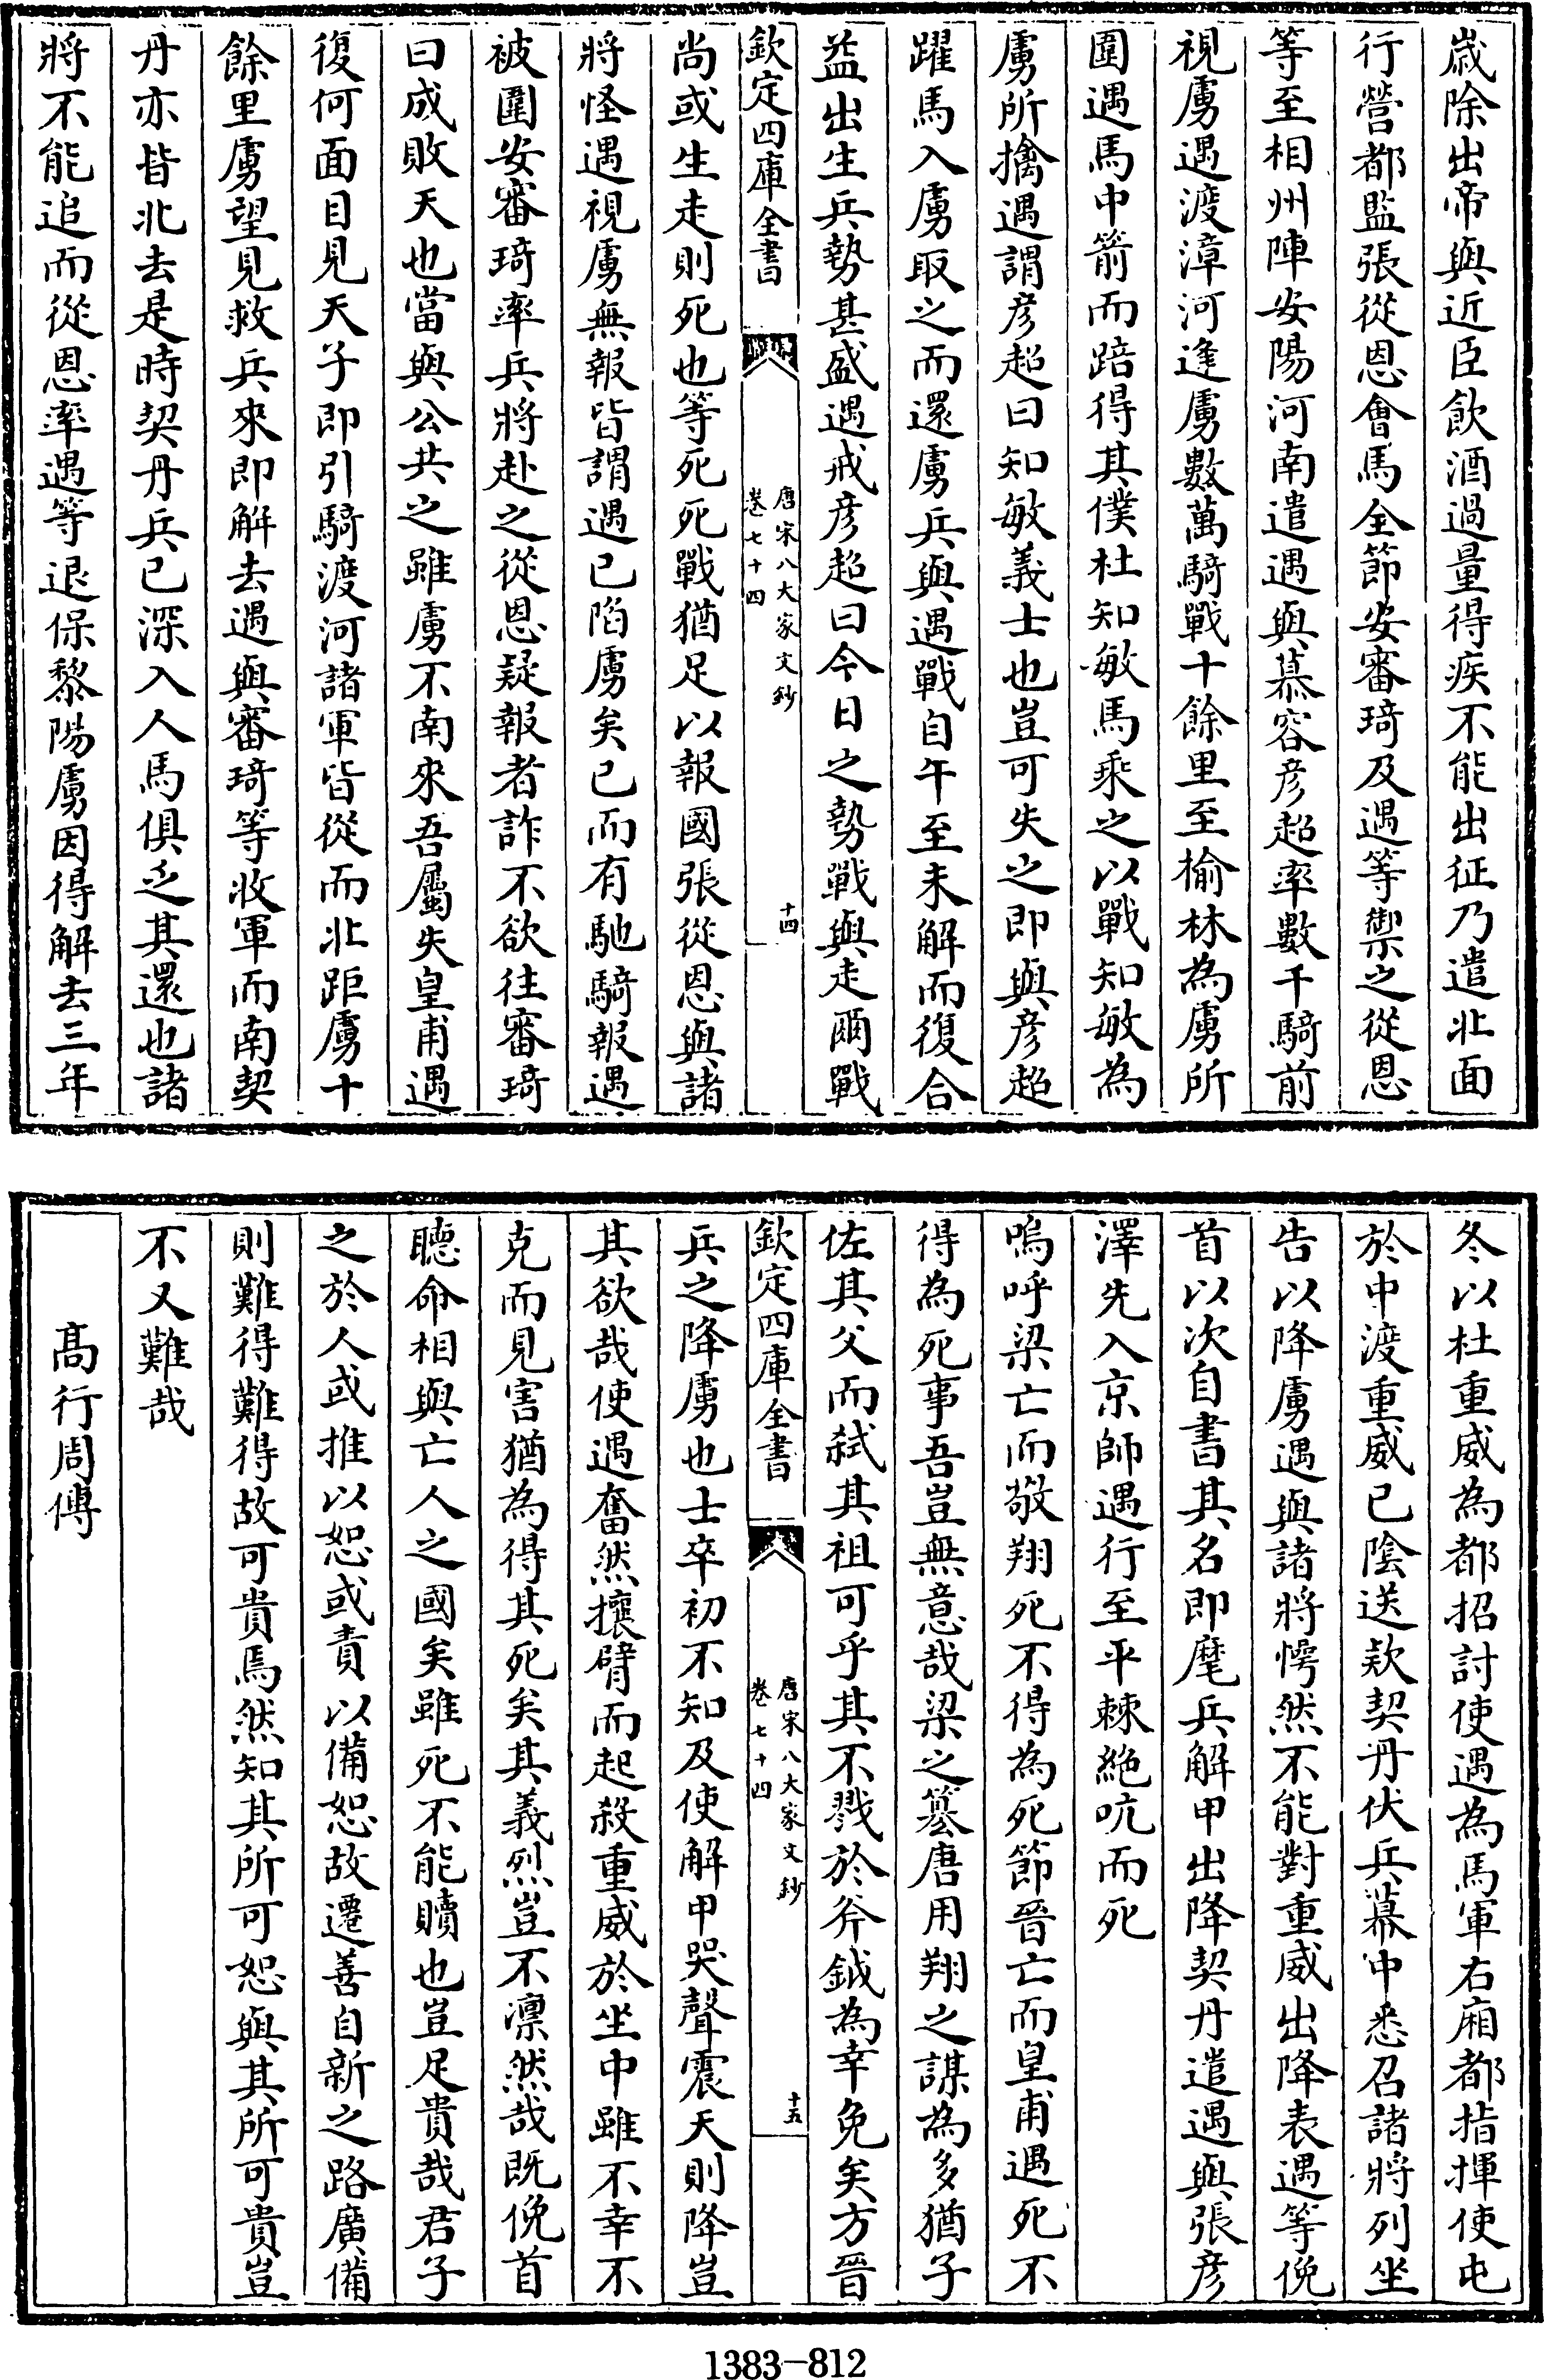 嵗除出帝與近臣飲酒過量得疾不能出征乃遣北面
行營都監張從恩會馬全節安審琦及遇等禦之從恩
等至相州陣安陽河南遣遇與慕容彦超率數千騎前
視虜遇渡漳河逢虜數萬騎戰十餘里至榆林為虜所
圍遇馬中箭而踣得其僕杜知敏馬乘之以戰知敏為
虜所擒遇謂彦超曰知敏義士也豈可失之即與彦超
躍馬入虜取之而還虜兵與遇戰自午至未解而復合
益出生兵勢甚盛遇戒彦超曰今日之勢戰與走爾戰
欽定四庫全書
唐宋八大家文鈔
卷七十四
十四
尚或生走則死也等死死戰猶足以報國張從恩與諸
將怪遇視虜無報皆謂遇已陷虜矣已而有馳騎報遇
被圍安審琦率兵將赴之從恩疑報者詐不欲往審琦
曰成敗天也當與公共之雖虜不南來吾屬失皇甫遇
復何面目見天子即引騎渡河諸軍皆從而北距虜十
餘里虜望見救兵來即解去遇與審琦等收軍而南契
丹亦皆北去是時契丹兵已深入人馬俱乏其還也諸
將不能追而從恩率遇等退保黎陽虜因得解去三年
冬以杜重威為都招討使遇為馬軍右廂都指揮使屯
於中渡重威已陰送欵契丹伏兵幕中悉召諸將列坐
告以降虜遇與諸將愕然不能對重威出降表遇等俛
首以次自書其名即麾兵解甲出降契丹遣遇與張彦
澤先入京師遇行至平棘絶吭而死
嗚呼梁亡而敬翔死不得為死節晉亡而皇甫遇死不
得為死事吾豈無意哉梁之簒唐用翔之謀為多猶子
佐其父而弑其祖可乎其不戮於斧鉞為幸免矣方晉
欽定四庫全書
唐宋八大家文鈔
卷七十四
十五
兵之降虜也士卒初不知及使解甲哭聲震天則降豈
其欲哉使遇奮然攘臂而起殺重威於坐中雖不幸不
克而見害猶為得其死矣其義烈豈不凛然哉既俛首
聽命相與亡人之國矣雖死不能贖也豈足貴哉君子
之於人或推以恕或責以備恕故遷善自新之路廣備
則難得難得故可貴焉然知其所可恕與其所可貴豈
不又難哉
高行周傳
1383-812